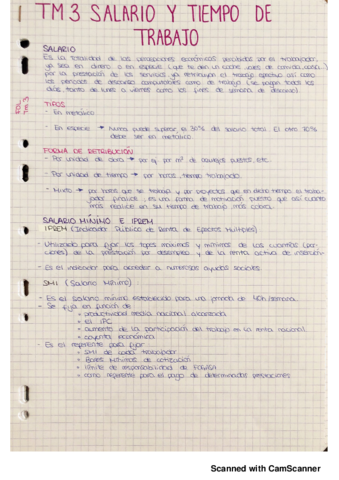 TM 3 SALARIO Y TIEMPO DE
TRABAJO
FOL
TM 3
SALARIO
Es la totalidad de las percepciones económicas percibidas por el trabajador,
ya sea en dinero o en especie (que te den un coche, vales de comida, casa...)
por la prestación de los servicios ya retribuyan el trabajo efectivo así como
los periodos de descanso computables como de trabajo (se pagan todos los
días, tanto de lunes a viernes como los fines de semana de descanso).
TIPOS
- En metálico
- En especie → Nunca puede superar el 30% del salario total. El otro 70%
debe ser en metálico.
FORMA DE RETRIBUCIÓN
- Por unidad de obra → por ej por m² de azulejos puestos etc.
- Por unidad de tiempo → por horas, tiempo trabajado.
- Mixto → por horas que se trabaja y por proyectos que en dicho tiempo el traba-
jador finalice, es una forma de motivación puesto que así cuanto
más realice en su tiempo de trabajo, más cobra.
SALARIO MÍNIMO E IPREM
IPREM (Indicador Público de Renta de Efectos Múltiples)
- Utilizado para fijar los topes máximos y mínimos de las cuantías (por-
ciones) de la prestación por desempleo y de la renta activa de inserción
- Es el indicador para acceder a numerosas ayudas sociales.
SMI (Salario Mínimo)
- Es el salario mínimo establecido para una jornada de 40h/semana.
- Se fija en función de
* productividad media nacional alcanzada
* el IPC
* aumento de la participación del trabajo en la renta nacional
* coyunta económica.
- Es el referente para fijar
* SMI de cada trabajador
* Bases mínimas de cotización
* límite de responsabilidad de FOGASA
* como referente para el pago de determinadas prestaciones
Scanned with CamScanner